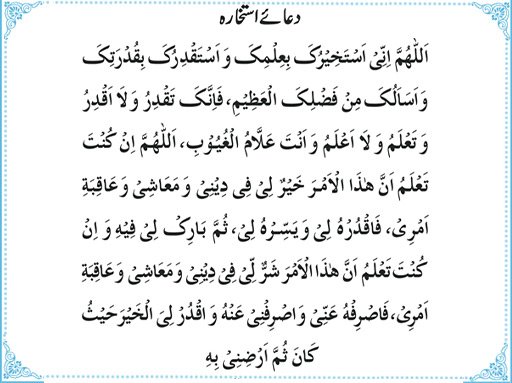 دعائے استخارہ
اَللّٰهُمَّ اِنِّیْ اَسْتَخِیْرُکَ بِعِلْمِکَ وَ اَسْتَقْدِرُکَ بِقُدْرَتِکَ
وَ اَسَالُکَ مِنْ فَضْلِکَ الْعَظِیْمِ، فَاِنَّکَ تَقْدِرُ وَ لَا اَقْدِرُ
وَ تَعْلَمُ وَ لَا اَعْلَمُ وَ اَنْتَ عَلَّامُ الْغُیُوْبِ، اَللّٰهُمَّ اِنْ کُنْتَ
تَعْلَمُ اَنَّ هٰذَا الْاَمْرَ خَیْرٌ لِیْ فِی دِیْنِیْ وَ مَعَاشِیْ وَ عَاقِبَةِ
اَمْرِیْ، فَاقْدُرْهُ لِیْ وَ یَسِّرْهُ لِیْ، ثُمَّ بَارِکْ لِیْ فِیْهِ وَ اِنْ
کُنْتَ تَعْلَمُ اَنَّ هٰذَا الْاَمْرَ شَرٌّ لِّی فِی دِیْنِیْ وَمَعَاشِیْ وَ عَاقِبَةِ
اَمْرِیْ، فَاصْرِفْهُ عَنِّیْ وَاصْرِفْنِیْ عَنْهُ وَ اقْدُرْ لِیَ الْخَیْرَ حَیْثُ
کَانَ ثُمَّ اَرْضِنِیْ بِهِ